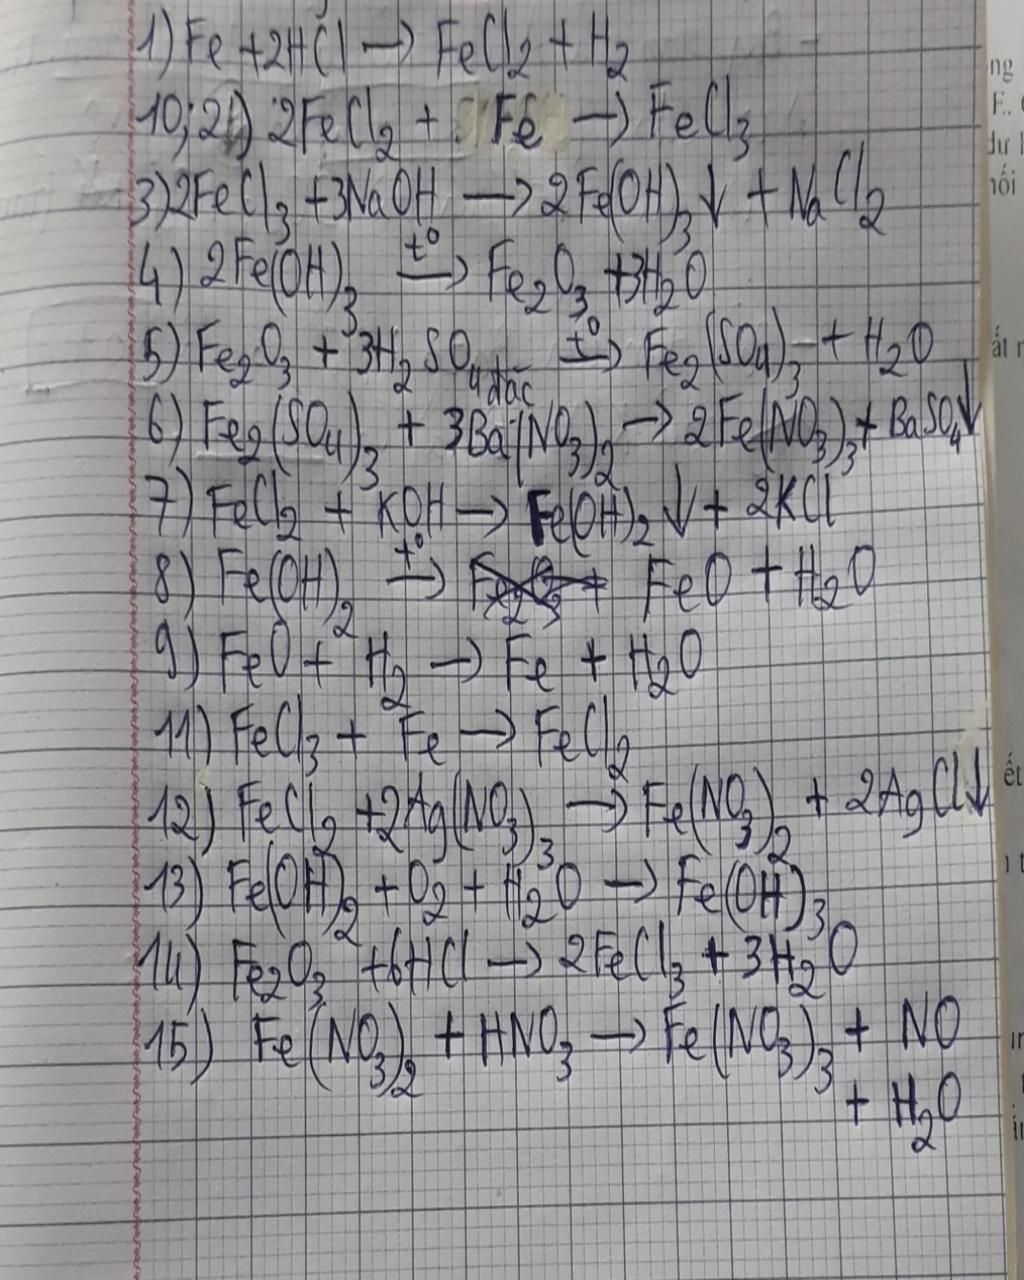 1) Fe + 2HCl → FeCl₂ + H₂
10; 2) 2FeCl₂ + Fe → FeCl₃
3) 2FeCl₃ + 3NaOH → 2Fe(OH)₃↓ + NaCl₂
4) 2Fe(OH)₃ t° → Fe₂O₃ + 3H₂O
5) Fe₂O₃ + 3H₂SO₄ đặc t° → Fe₂(SO₄)₃ + H₂O
6) Fe₂(SO₄)₃ + 3Ba(NO₃)₂ → 2Fe(NO₃)₃ + BaSO₄↓
7) FeCl₂ + KOH → Fe(OH)₂↓ + 2KCl
8) Fe(OH)₂ t° → FeO + H₂O
9) FeO + H₂ → Fe + H₂O
11) FeCl₃ + Fe → FeCl₂
12) FeCl₂ + 2Ag(NO₃)₃ → Fe(NO₃)₂ + 2AgCl↓
13) Fe(OH)₂ + O₂ + H₂O → Fe(OH)₃
14) Fe₂O₃ + 6HCl → 2FeCl₃ + 3H₂O
15) Fe(NO₃)₂ + HNO₃ → Fe(NO₃)₃ + NO
+ H₂O